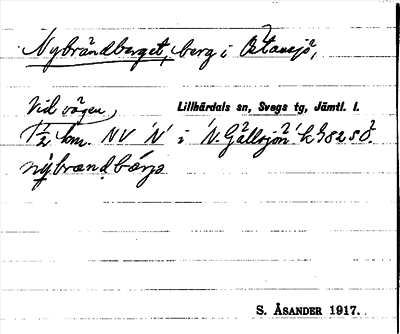 Nybrändberget, berg i Östansjö,
Vid vägen,
Lillhärdals sn, Svegs tg, Jämtl. l.
1½ km. NV 'N' i 'N. Gällsjön'
nybrandbärje
S. ÅSANDER 1917.